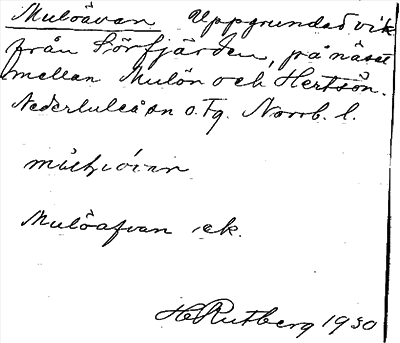 Mulöavan Uppgrundad vik
från Sörfjärden, på näset
mellan Mulön och Hertsön.
Nederluleå sn o. Tg. Norrb. l.
Mulöafvan ek.
H Rutberg 1930